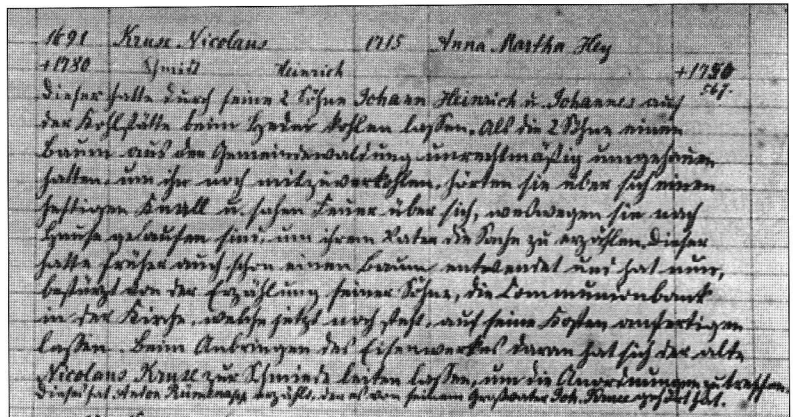 1691 Kruse Nicolaus 1715 Anna Martha Hey
+1780 Schmidt Heinrich +1750
Dieser hatte durch seine 2 Söhne Johann Heinrich u. Johannes auf
der Kohlstätte beim Heder kohlen lassen. Als die 2 Söhne einen
Baum aus der Gemeindewaldung unrechtmäßig umgehauen
hatten, um ihn noch mitzuverkohlen, hörten sie über sich einen
heftigen Knall u. sahen Feuer über sich, weswegen sie nach
Hause gelaufen sind, um ihren Vater die Sache zu erzählen. Dieser
hatte früher auch schon einen Baum entwendet und hat nun,
bestürzt von der Erzählung seiner Söhne, die Communionbank
in der Kirche, welche jetzt noch steht, auf seine Kosten anfertigen
lassen. Beim Anbringen des Eisenwerkes daran hat sich der alte
Nicolaus Kruse zur Schmiede leiten lassen, um die Anordnungen zu treffen.
Dieses hat Anton erzählt, der es von seinem Großvater Joh. Kruse gehört hat.